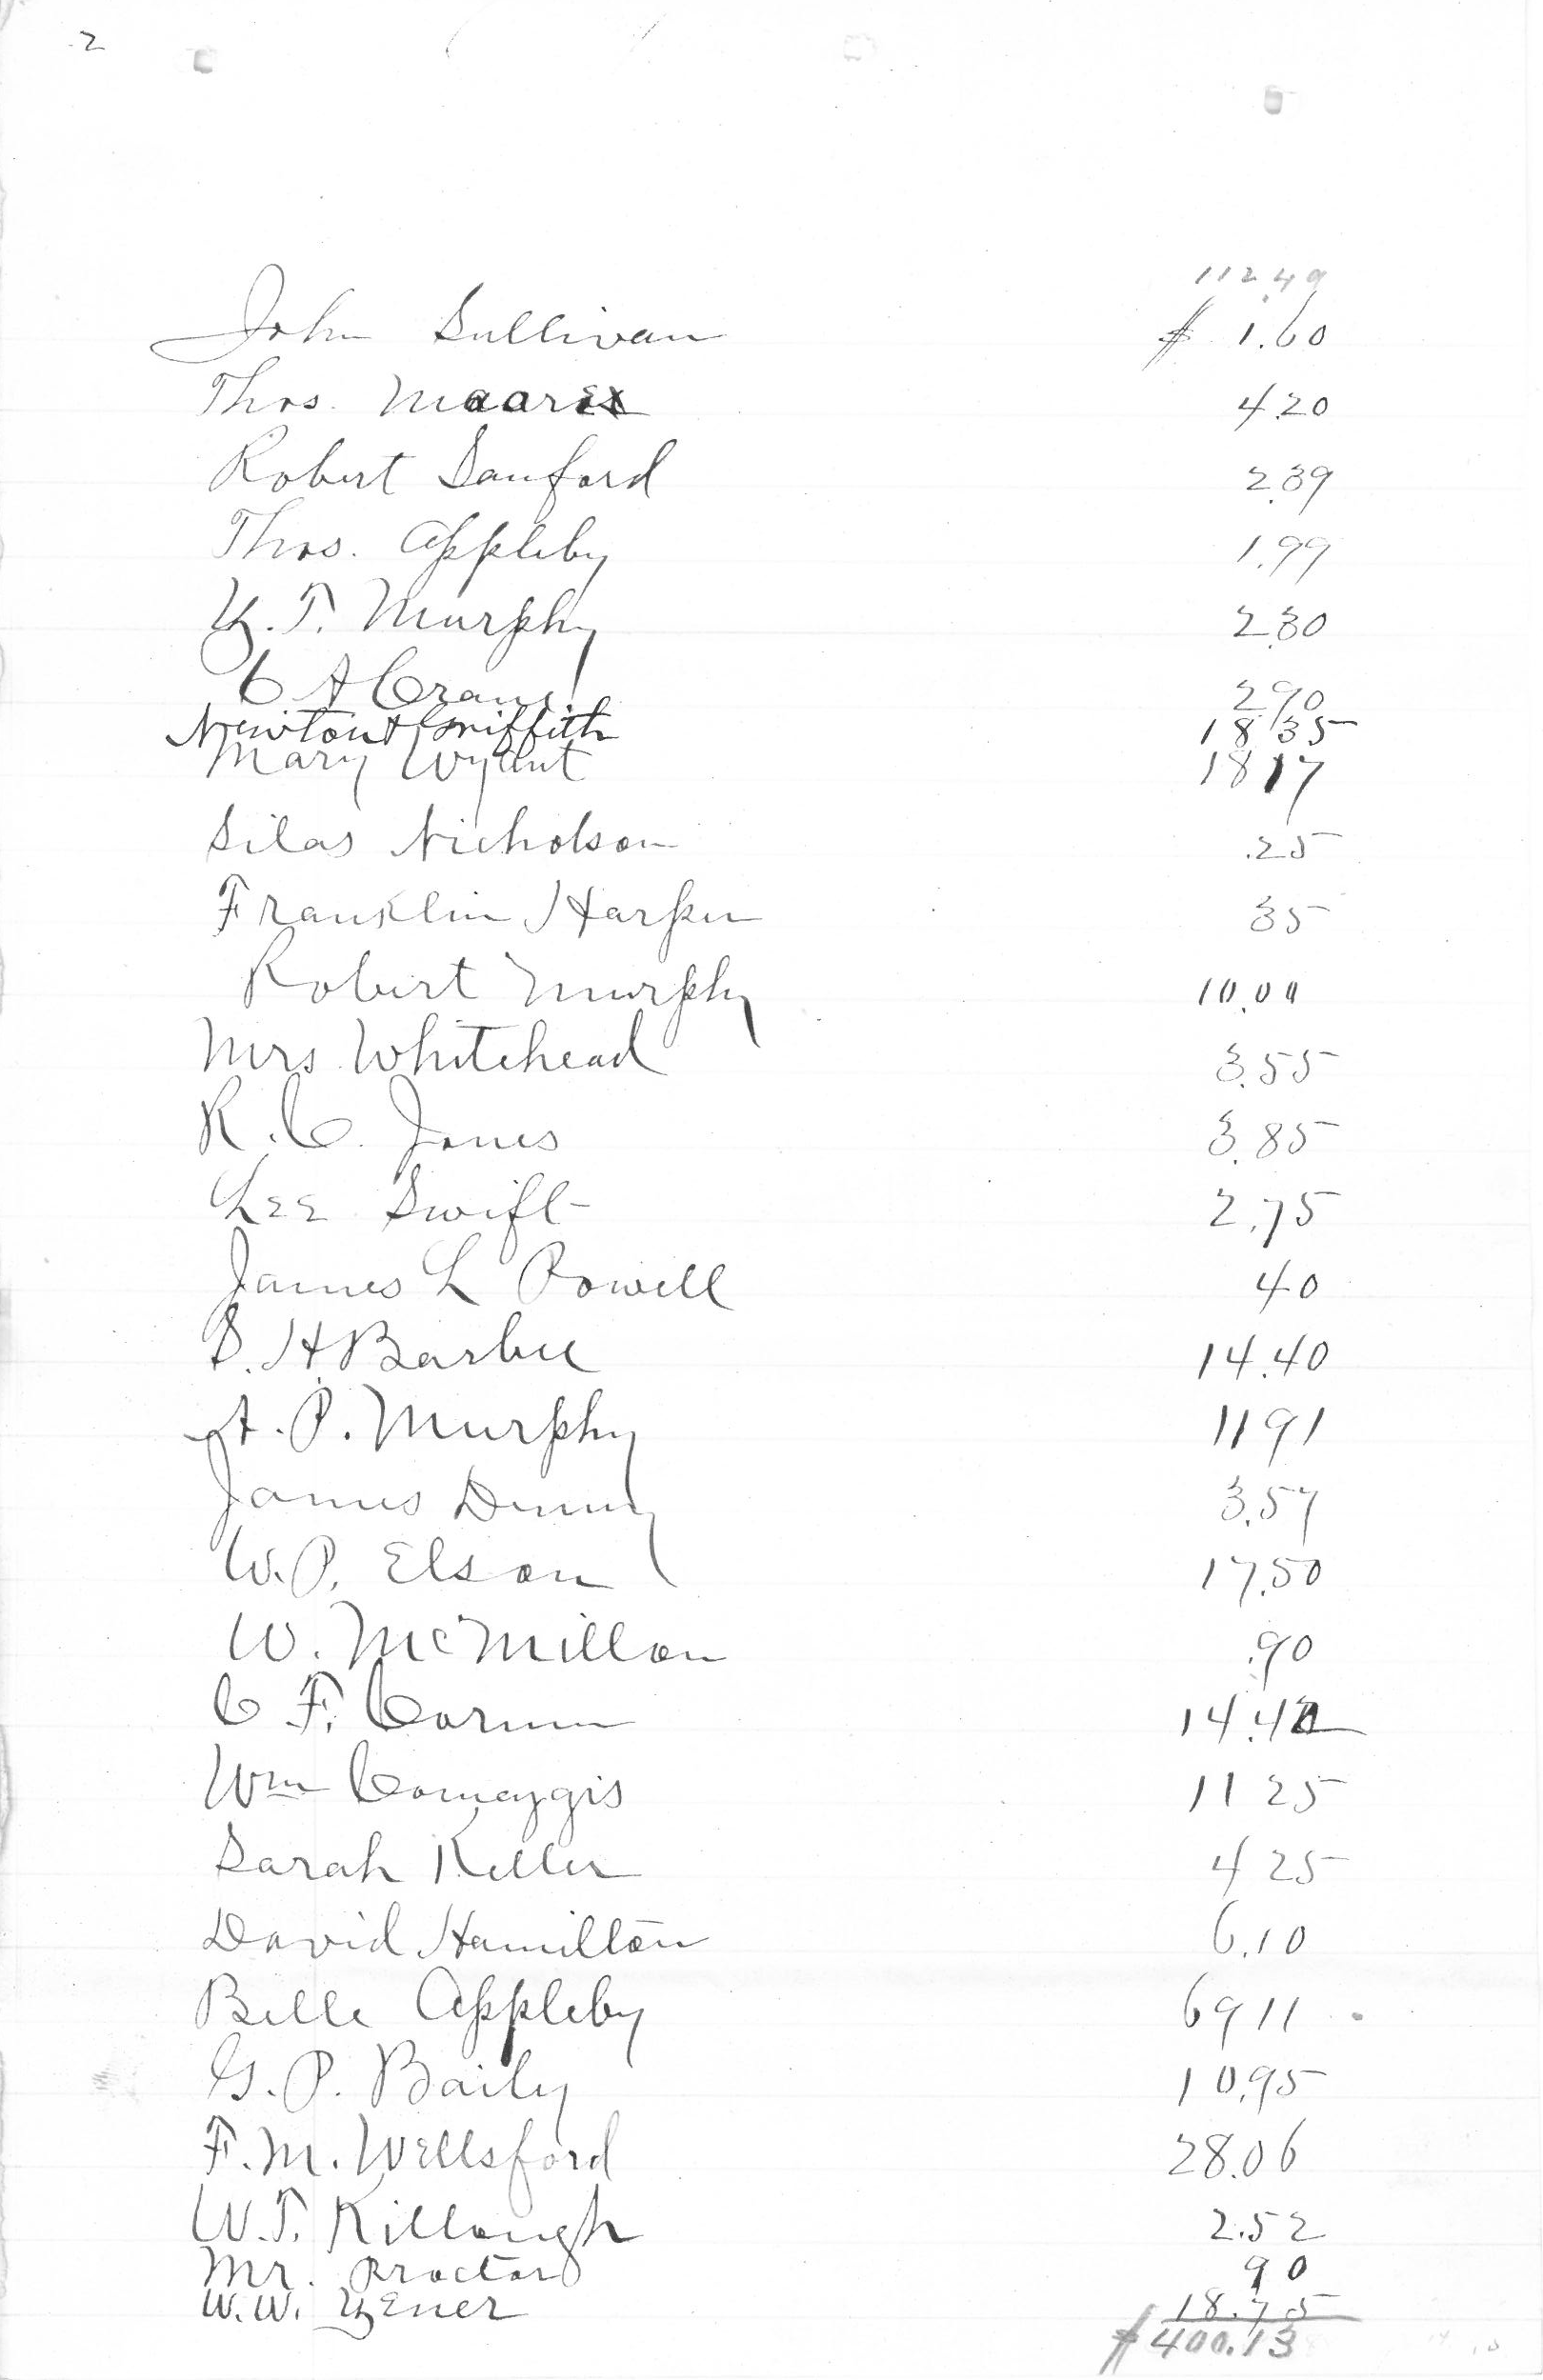 2
112.49
John Sullivan $ 1.60
Thos. 4.20
Robert Sanford 2.39
Thos. Appleby 1.99
Y. T. Murphy 2.30
C A Crane 2.90
Newton Griffith 18 35
Mary Wyant 18 17
Silas Nicholson .25
Franklin Harper 35
Robert Murphy 10.00
Mrs Whitehead 3.55
R. C. Jones 3.85
Lee Swift 2.75
James L Powell 40
S. H. Barbee 14.40
A. P. Murphy 11 91
James Denny 3.57
W. P. Elson 17.50
W. McMillon .90
C F. 14.42
Wm 11 25
Sarah Keller 4 25
David Hamilton 6.10
Belle Appleby 69 11
G. P. Baily 10.95
F. M. Wellsford 28.06
W. T. Killough 2.52
Mr. Proctor 90
W. W. Zener 18.75
$ 400.13